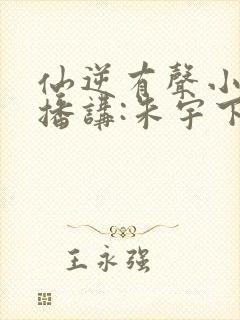 仙逆有聲小
播講:朱宇下
王永强